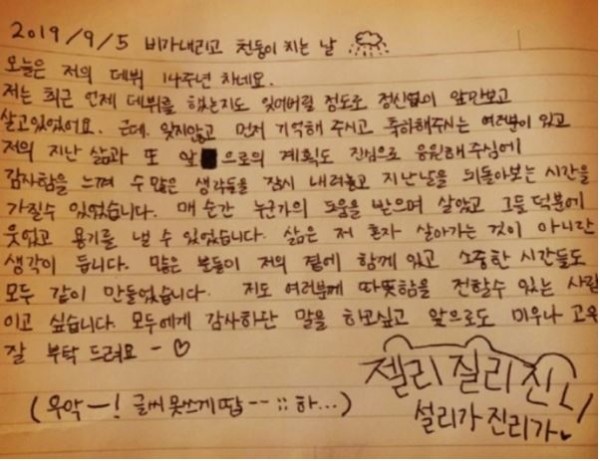 2019/9/5 비가내리고 천둥이 치는 날
오늘은 저의 데뷔 14주년 차네요.
저는 최근 언제 데뷔를 했는지도 잊어버릴 정도로 정신없이 앞만보고
살고있었어요. 근데, 잊지않고 먼저 기억해 주시고 축하해주시는 여러분이 있고
저의 지난 삶과 또 앞으로의 계획도 진심으로 응원해 주심에
감사함을 느껴 수 많은 생각들을 잠시 내려놓고 지난날을 뒤돌아보는 시간을
가질수 있었습니다. 매 순간 누군가의 도움을 받으며 살았고 그들 덕분에
웃었고 용기를 낼 수 있었습니다. 삶은 저 혼자 살아가는 것이 아니란
생각이 듭니다. 많은 분들이 저의 곁에 함께 있고 소중한 시간들도
모두 같이 만들었습니다. 저도 여러분께 따뜻함을 전할수 있는 사람
이고 싶습니다. 모두에게 감사하단 말을 하고싶고 앞으로도 미우나 고우
잘 부탁 드려요 - ♡
젤리 질리 진니
설리가 진리가♥
(우악 ㅡ! 글씨 못쓰게땁 -- :: 하...)